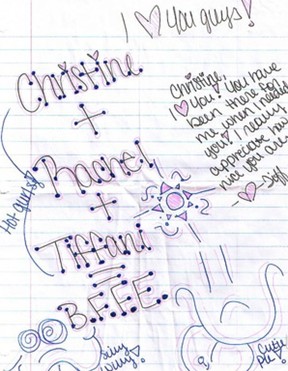 I ♡ You guys!
Christine
+
Rachel
+
Tiffani
=
B.F.F.E.
Christine,
I ♡ You! You have
been there for
me when I needed
you! I really
appreciate how
nice you are
-♡- Tiff
Hot guys!
Cutie
Pie!